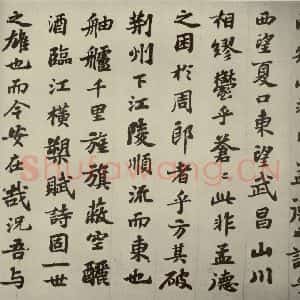 西望夏口東望武昌山川
相繆鬱乎蒼此非孟德
之困於周郎者乎方其破
荊州下江陵順流而東也
舳艫千里旌旗蔽空釃
酒臨江橫槊賦詩固一世
之雄也而今安在哉況吾與
Shufawang.CN